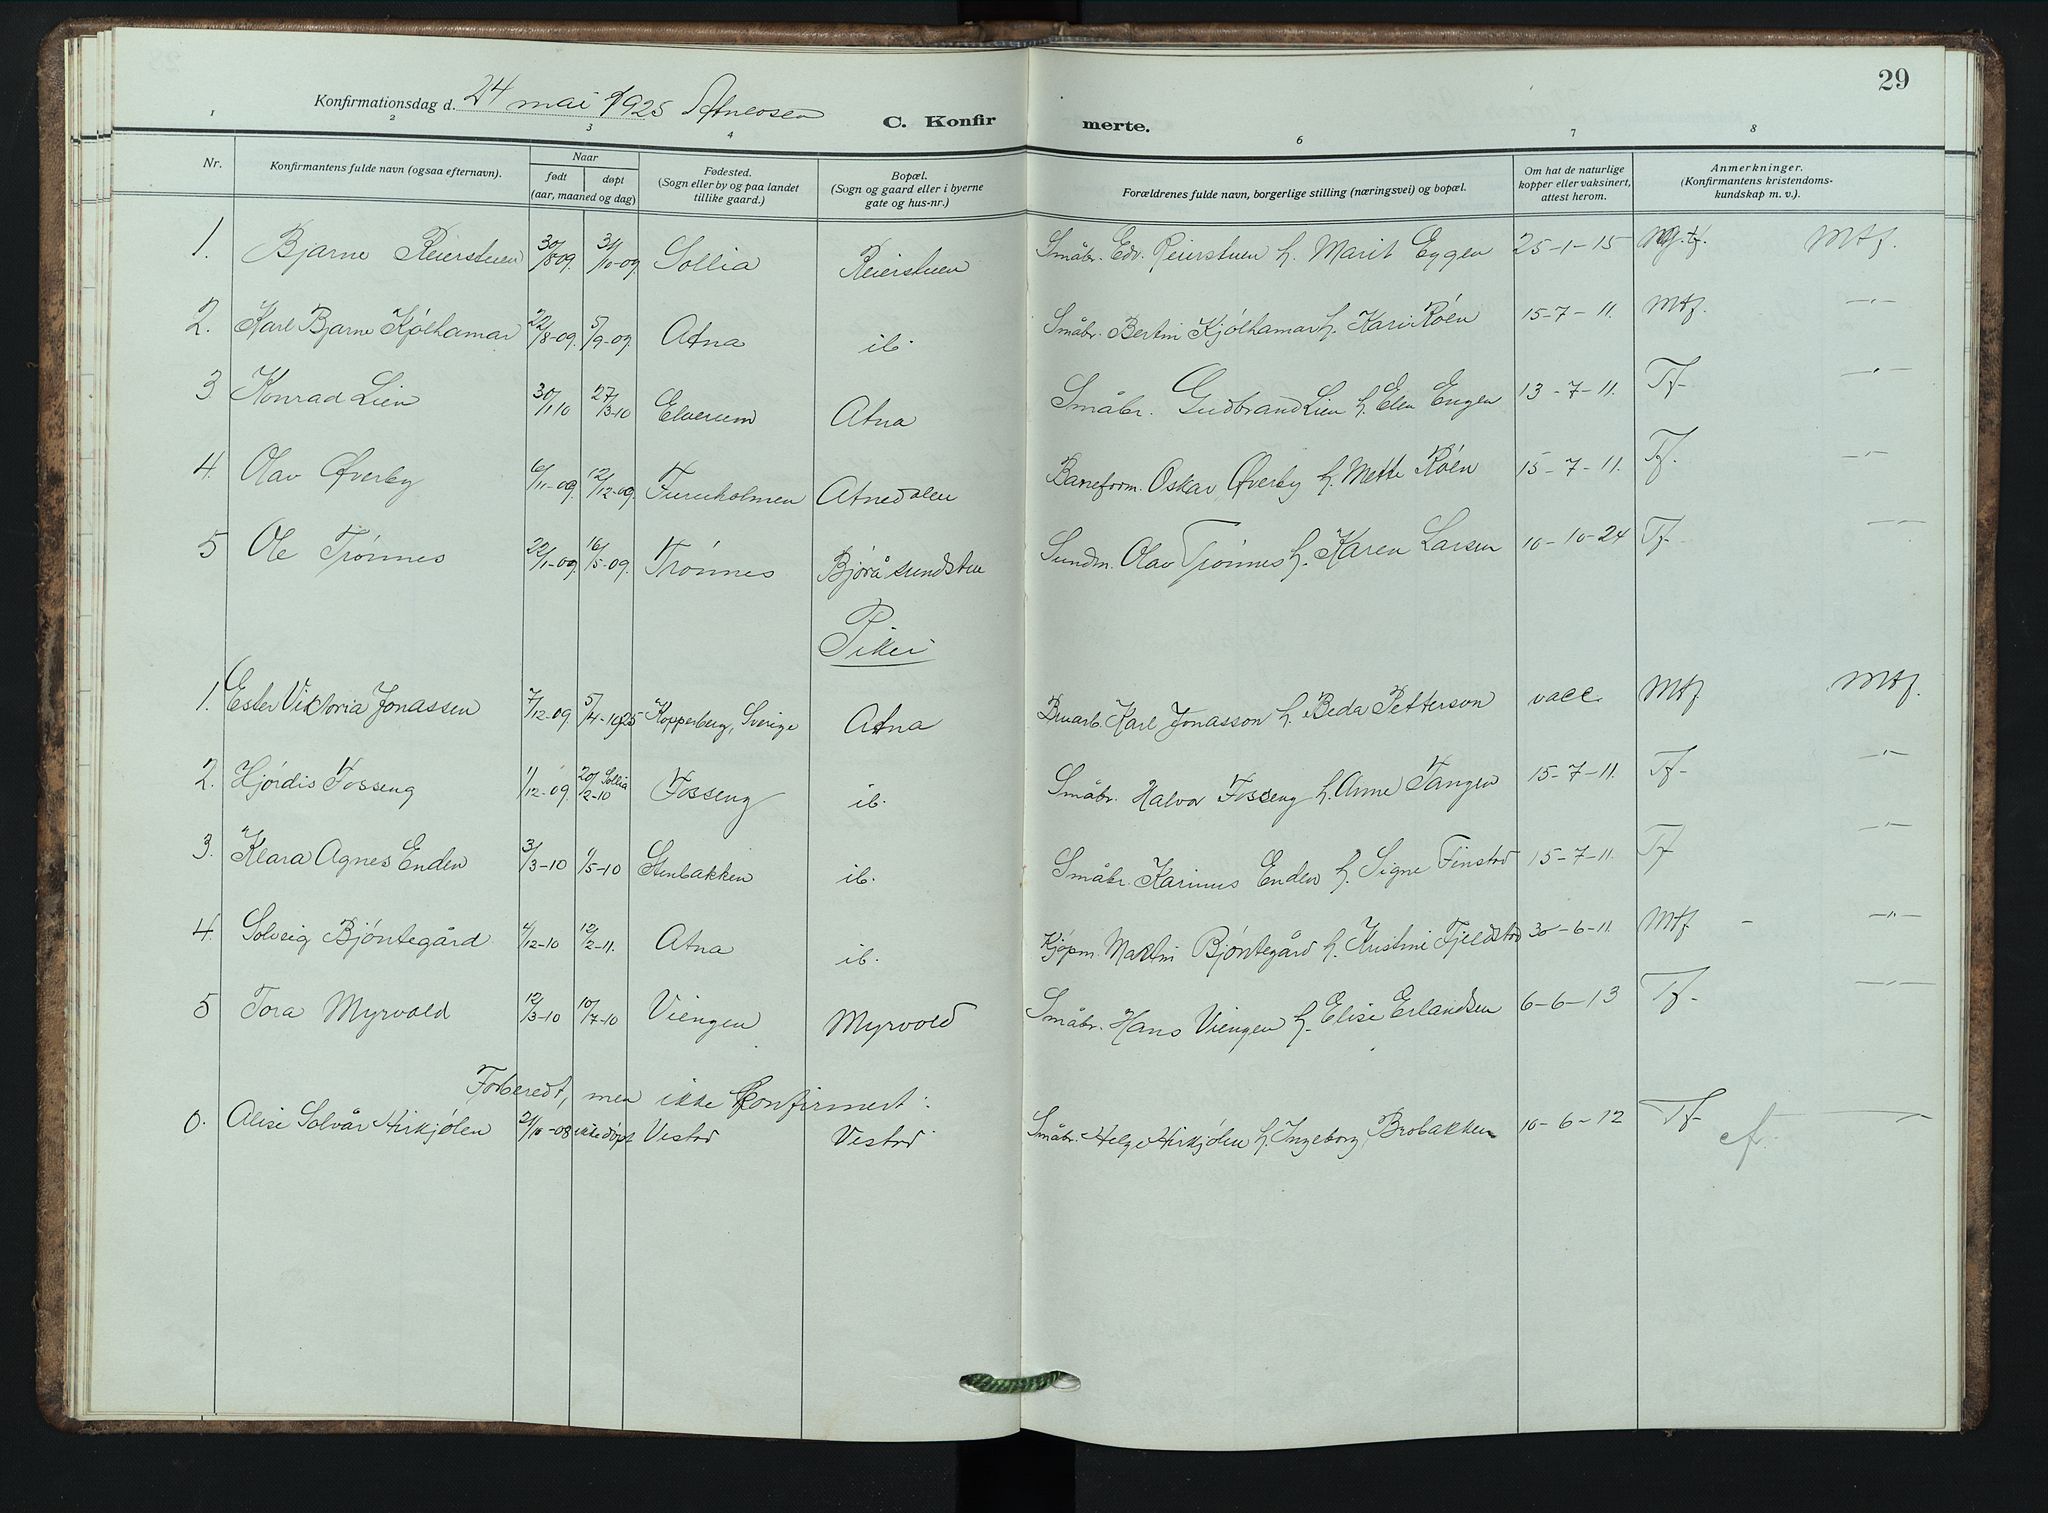 29
Konfirmationsdag d. 24 mai 1925 Atneosen
C. Konfirmerte.
1 2 3 4 6 7 8
Nr. Konfirmantens fulde navn (ogsaa efternavn). Naar født døpt (aar, maaned og dag) Fødested. (Sogn eller by og paa landet tillike gaard.) Bopæl. (Sogn og gaard eller i byerne gate og hus-nr.) Forældrenes fulde navn, borgerlige stilling (næringsvei) og bopæl. Om hat de naturlige kopper eller vaksinert, attest herom. Anmerkninger. (Konfirmantens kristendomskundskap m. v.).
1. Bjarne Reierstuen 30/8-09. 31/10-09 Sollia Reierstuen Småbr. Edv. Reierstuen h. Marit Eggen 25-1-15 Mg.tf. Mtf.
2. Karl Bjarne Kjølhamar 22/8-09. 5/9-09. Atna ib. Småbr. Bertin Kjølhamar h. Kari Røen 15-7-11. Mtf. -"-
3 Konrad Lien 30/1 10 27/3-10 Elverum Atna Småbr. Gudbrand Lien h. Elen Engen 13-7-11. Tf- -"-
4. Olav Øverby 6/11-09. 12/12-09. Furuholmen Atnedalen Baneform. Oskar Øverby h. Mette Røen 15-7-11. Tf. -"-
5 Ole Trønnes 22/1-09. 16/5-09. Trønnes Bjørå sundsten Sundm. Olav Trønnes h. Karen Larsen 10-10-24 Tf- -"-
Piker
1. Ester Viktoria Jonassen 7/12-09 5/4-1925 Kopperberg, Sverige Atna Bruarb. Karl Jonasson h. Beda Petterson vacc. Mtf Mtf.
2. Hjørdis Fosseng 1/12-09. 20/2-10 Sollia Fosseng ib. Småbr. Halvor Fosseng h. Anne Tangen 15-7-11. Tf- -"-
3. Klara Agnes Enden 3/3-10 1/5-10 Stenbakken ib. Småbr. Karinus Enden h. Signe Finstad 15-7-11. Tf -"-
4. Solveig Bjøntegård 4/12-10 12/2-11. Atna ib. Kjøpm. Martin Bjøntegård h. Kristine Fjeldstad 30-6-11. Mtf - -"-
5 Tora Myrvold 12/3-10 10/7-10 Viengen Myrvold Småbr. Hans Viengen h. Elise Erlandsen 6-6-13 Tf- -"-
Forberedt, men ikke konfirmert:
0. Alise Solvår Hirkjølen 21/10-08 ikke døpt Vestad Vestad Småbr. Helge Hirkjølen h. Ingeborg Brobakken 10-6-12 Tf-